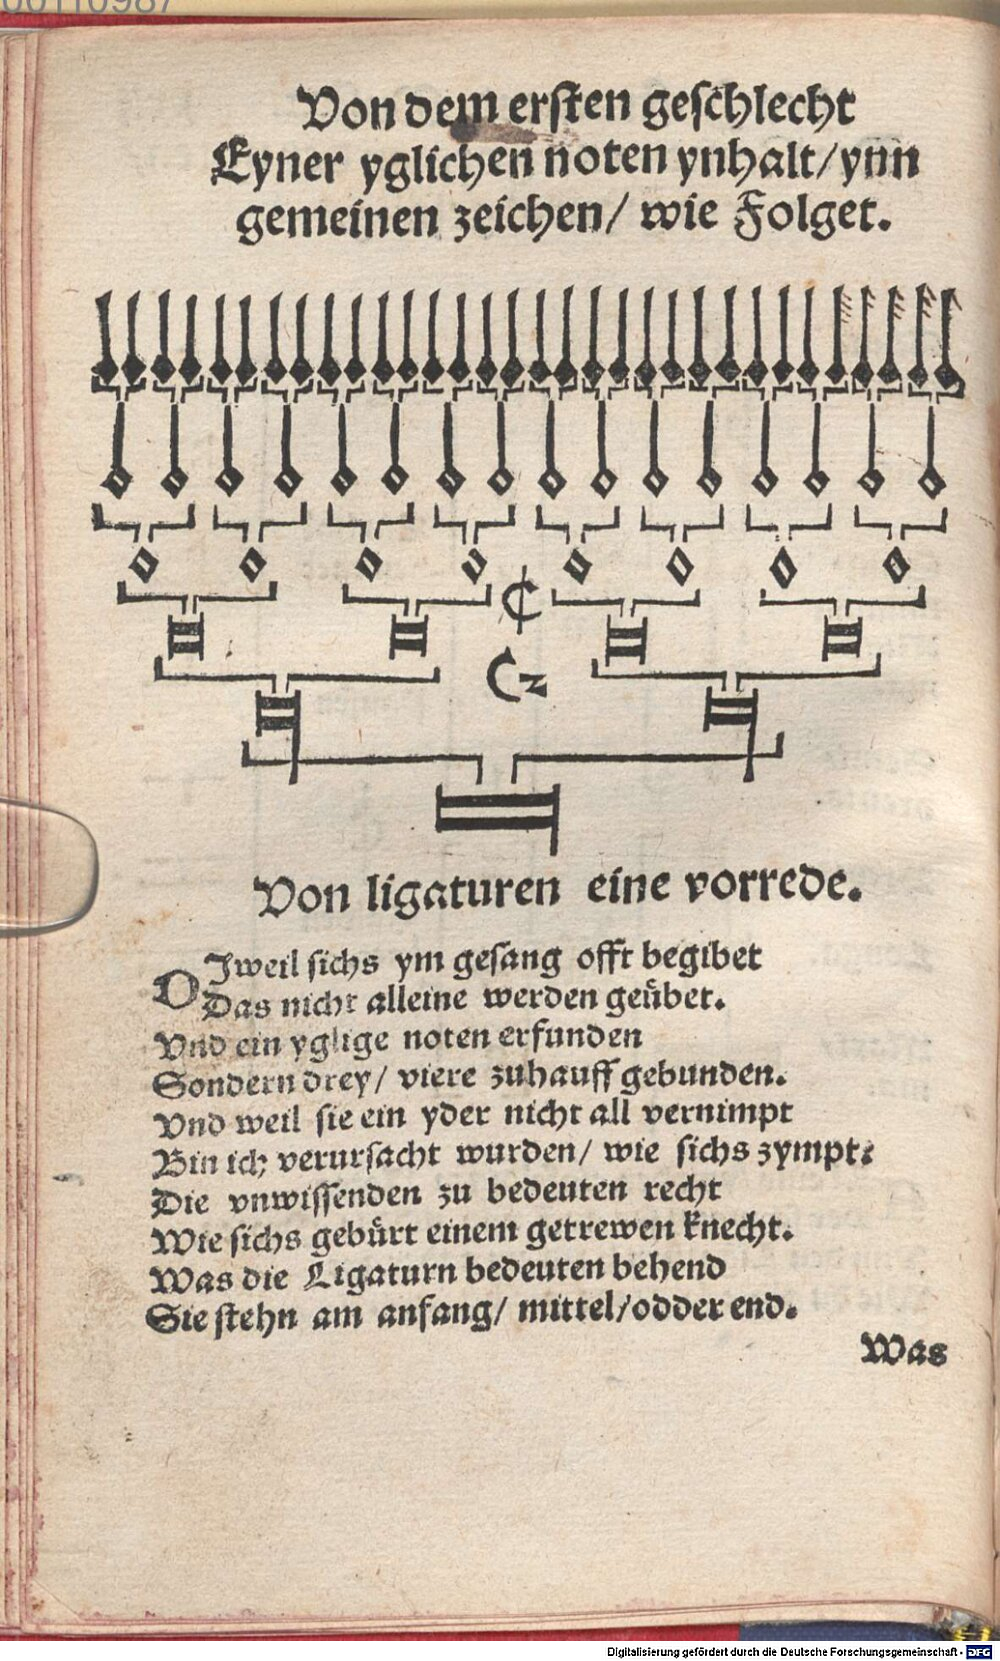 00110987
Von dem ersten geschlecht
Eyner yglichen noten ynhalt/ ynn
gemeinen zeichen/ wie Folget.
C
C2
Von ligaturen eine vorrede.
DJweil sichs ym gesang offt begibet
Das nicht alleine werden geuͤbet.
Vnd ein yglige noten erfunden
Sondern drey/ viere zuhauff gebunden.
Vnd weil sie ein yder nicht all vernimpt
Bin ich verursacht wurden/ wie sichs zympt:
Die vnwissenden zu bedeuten recht
Wie sichs gebuͤrt einem getrewen knecht.
Was die Ligaturn bedeuten behend
Sie stehn am anfang/ mittel/ odder end.
Was
Digitalisierung gefördert durch die Deutsche Forschungsgemeinschaft - DFG